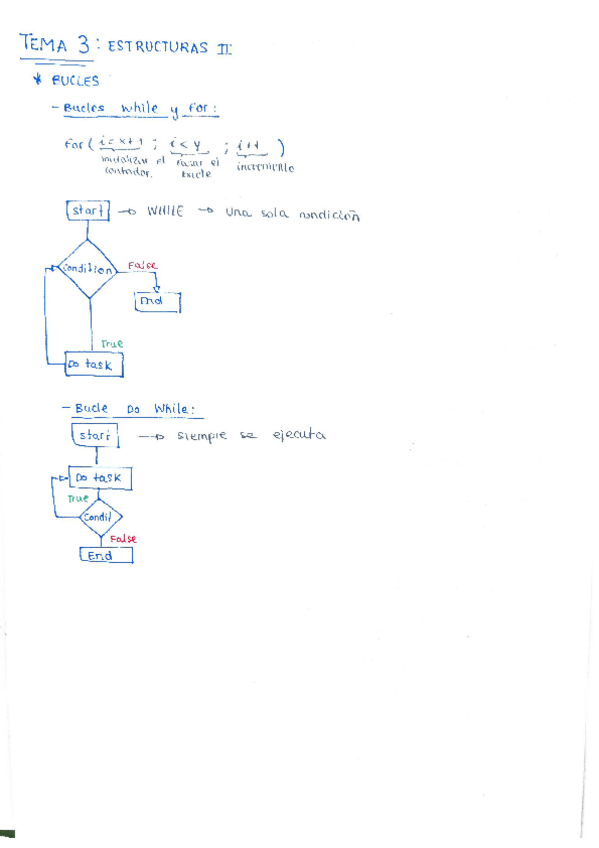 TEMA 3: ESTRUCTURAS II:
* BUCLES
- Bucles while y for:
for ( i=x+1 ; i<y ; i++ )
inicializar el contador. incremento
start → WHILE → Una sola condición
Condition False
End
True
Do task
- Bucle Do While:
start → siempre se ejecuta
Do task
True
Condit
False
End